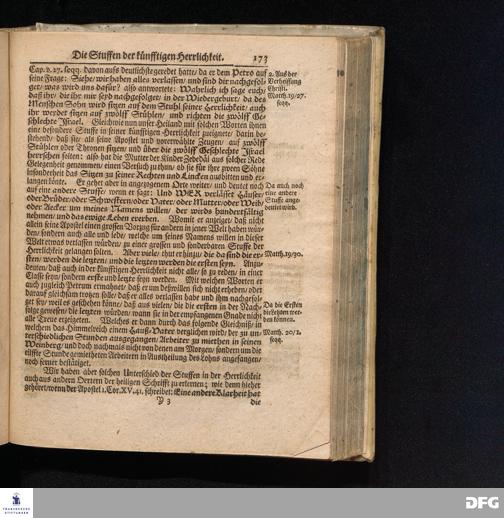 Die Stuffen der künfftigen Herrlichkeit. 173
Cap. v. 27. seqq. davon auffs deutlichste geredet hatte/ da er dem Petro auf
seine Frage: Siehe/ wir haben alles verlassen/ und sind dir nachgefol-
get/ was wird uns dafür? also antwortete: Wahrlich ich sage euch/
daß ihr/ die ihr mir seyd nachgefolget/ in der Wiedergeburt/ da des
Menschen Sohn wird sitzen auf dem Stuhl seiner Herrlichkeit/ auch
ihr werdet sitzen auf zwölff Stühlen/ und richten die zwölff Ge-
schlechte Israel. Gleichwie nun unser Heiland mit solchen Worten ihnen
eine besondere Stuffe in seiner künfftigen Herrlichkeit zueignete/ darin be-
stehend/ daß sie/ als seine Apostel und vorerwählte Zeugen/ auf zwölff
Stühlen oder Thronen sitzen/ und über die zwölff Geschlechte Israel
herrschen solten: also hat die Mutter der Kinder Zebedäi aus solcher Rede
Gelegenheit genommen/ einen Versuch zu thun/ ob sie für ihre zween Söhne
insonderheit das Sitzen zu seiner Rechten und Lincken ausbitten und er-
langen könte. Er gehet aber in angezogenem Orte weiter/ und deutet noch
auf eine andere Stuffe/ wenn er sagt: Und WER verlässet Häuser/
oder Brüder/ oder Schwestern/ oder Vater/ oder Mutter/ oder Weib/
oder Kinder/ oder Aecker um meines Namens willen/ der wirds hundertfältig
nehmen/ und das ewige Leben ererben. Womit er anzeiget/ daß nicht
allein seine Apostel einen grossen Vorzug für andern in jener Welt haben wür-
den/ sondern auch alle und jede/ welche um seines Namens willen in dieser
Welt etwas verlassen würden/ zu einer grossen und sonderbaren Stuffe der
Herrlichkeit gelangen solten. Aber viele/ thut er hinzu/ die da sind die er-
sten/ werden die letzten/ und die letzten werden die ersten seyn. Anzu-
deuten/ daß auch in der künfftigen Herrlichkeit nicht alle/ so zu reden/ in einer
Classe seyn/ sondern erste und letzte seyn werden. Mit welchen Worten er
auch zugleich Petrum ermahnet/ daß er um deßwillen sich nicht erheben/ oder
darauf gleichsam trotzen solle/ daß er alles verlassen habe und ihm nachgefol-
get sey/ weil es geschehen könte/ daß aus vielen/ die die ersten in der Nach-
folge gewesen/ die letzten würden/ wann sie in der empfangenen Gnade nicht
alle Treue erzeigeten. Welches er dann durch das folgende Gleichniß/ in
welchem das Himmelreich einem Hauß-Vater verglichen wird/ der zu un-
terschiedlichen Stunden ausgegangen/ Arbeiter zu miethen in seinen
Weinberg/ und doch nachmals nicht von denen am Morgen/ sondern um die
eilffte Stunde gemietheten Arbeitern in Austheilung des Lohns angefangen/
noch ferner bestätiget.
Wir haben aber solchen Unterschied der Stuffen in der Herrlichkeit
auch aus andern Oertern der heiligen Schrifft zu erlernen; wie denn hieher
gehöret/ wenn der Apostel 1. Cor. XV. 41. schreibet: Eine andere Klarheit hat
Y 3 die
2. Aus der
Verheissung
Christi.
Matth. 19/27.
seqq.
Da auch noch
eine andere
Stuffe ange-
deutet wird.
Matth. 19/30.
Da die Ersten
die letzten wer-
den können.
Matth. 20/1.
seqq.
FRANCKESCHE
STIFTUNGEN
DFG